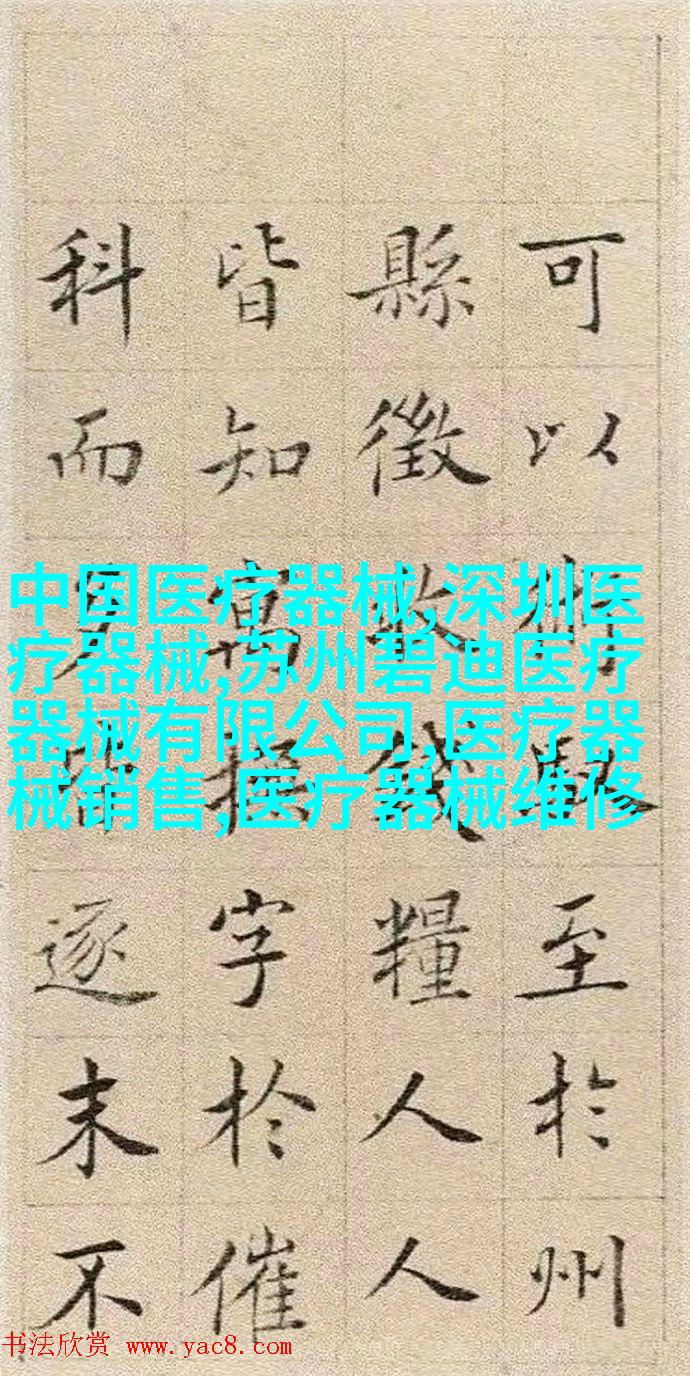 可以至於州
縣徵收錢糧人人
皆知寓撫字於催
科而逐末不
中国医疗器械,深圳医
疗器械,苏州碧迪医疗
器械有限公司,医疗器
械销售,医疗器械维修
书法欣赏 www.yac8.com